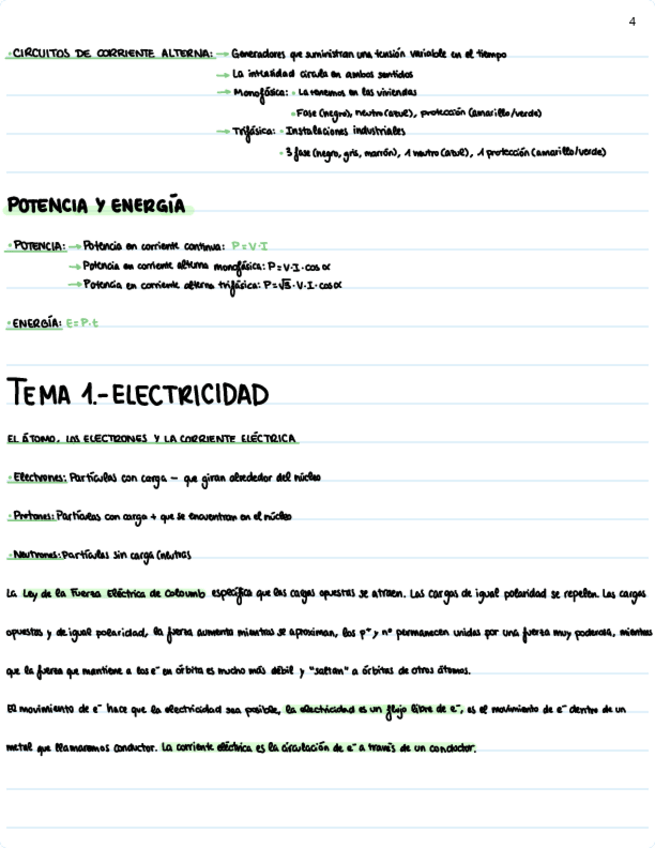 4
· CIRCUITOS DE CORRIENTE ALTERNA: → Generadores que suministran una tensión variable en el tiempo
→ La intensidad circula en ambos sentidos
→ Monofásica: · La tenemos en las viviendas
· Fase (negro), neutro (azul), protección (amarillo/verde)
→ Trifásica: · Instalaciones industriales
· 3 fase (negro, gris, marrón), 1 neutro (azul), 1 protección (amarillo/verde)
POTENCIA Y ENERGÍA
· POTENCIA: → Potencia en corriente continua: P=V·I
→ Potencia en corriente alterna monofásica: P=V·I·cos α
→ Potencia en corriente alterna trifásica: P=√3·V·I·cosα
· ENERGÍA: E=P·t
TEMA 1.-ELECTRICIDAD
EL ÁTOMO, LOS ELECTRONES Y LA CORRIENTE ELÉCTRICA
· Electrones: Partículas con carga - que giran alrededor del núcleo
· Protones: Partículas con carga + que se encuentran en el núcleo
· Neutrones: partículas sin carga (neutras
La Ley de la Fuerza Eléctrica de Coloumb especifica que las cargas opuestas se atraen. Las cargas de igual polaridad se repelen. Las cargas
opuestas y de igual polaridad, la fuerza aumenta mientras se aproximan, los p⁺ y nº permanecen unidas por una fuerza muy poderosa, mientras
que la fuerza que mantiene a los e⁻ en órbita es mucho más débil y "saltan" a órbitas de otros átomos.
El movimiento de e⁻ hace que la electricidad sea posible, la electricidad es un flujo libre de e⁻, es el movimiento de e⁻ dentro de un
metal que llamaremos conductor. La corriente eléctrica es la circulación de e⁻ a través de un conductor.